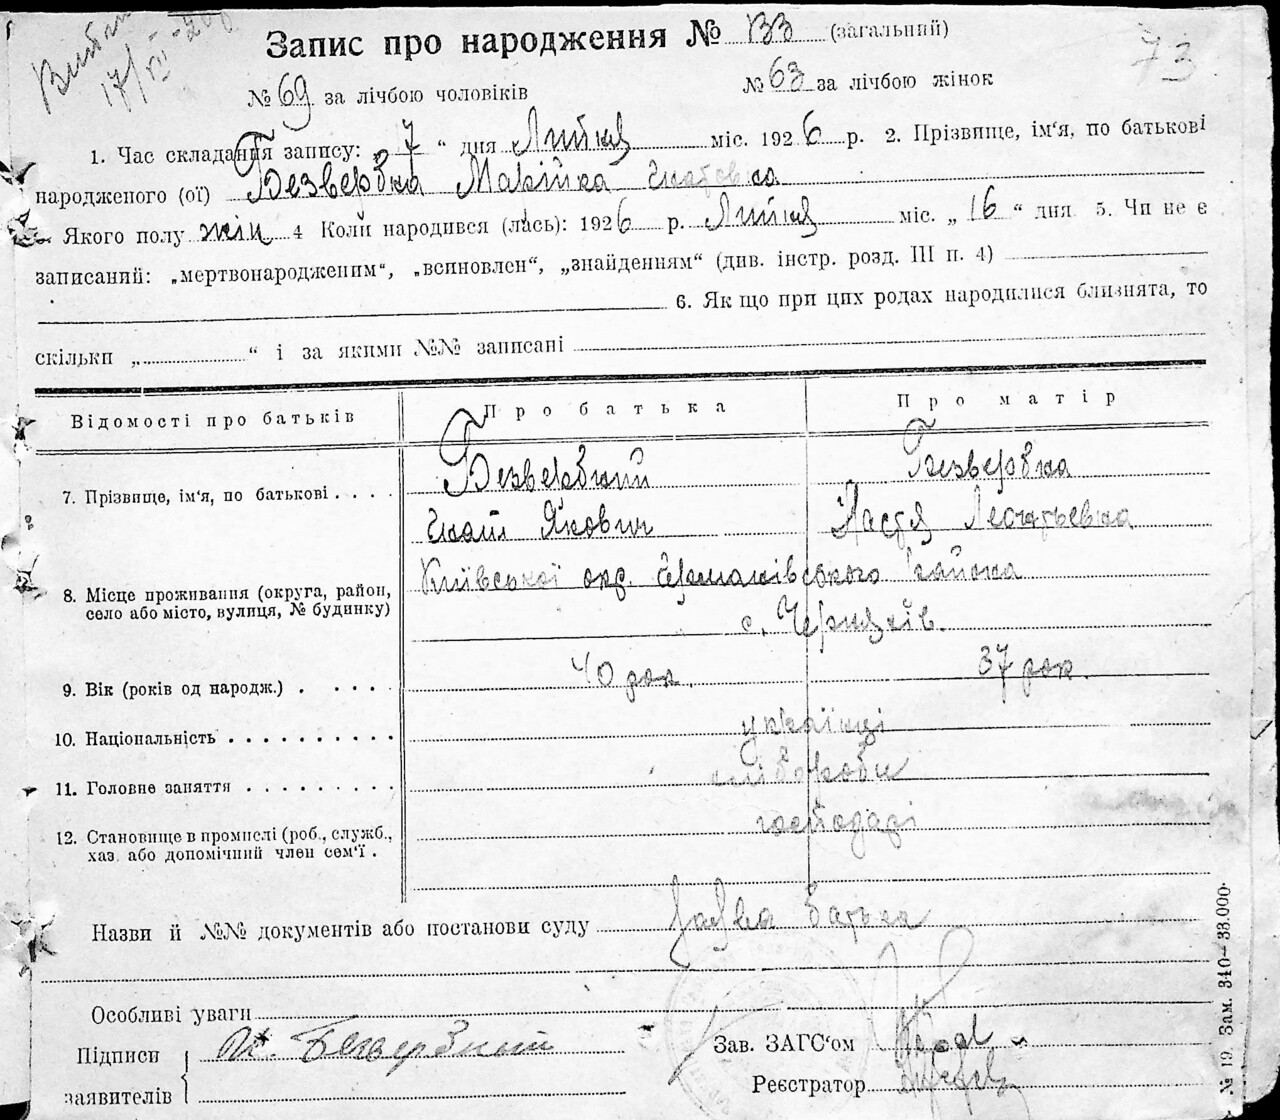 17/VII-26
Запис про народження № 133 (загальний)
73
№ 69 за лічбою чоловіків № 63 за лічбою жінок
1. Час складання запису: „ 7 “ дня Липця міс. 1926 р. 2. Прізвище, ім‘я, по батькові
народженого (ої) Безвербна Марійка
Якого полу жін 4 Коли народився (лась): 1926 р. Липця міс. „ 16 “ дня 5. Чи не є
записаний: „мертвонародженим“, „всиновлен“, „знайденням“ (див. інстр. розд. III п. 4)
6. Як що при цих родах народилися близнята, то
скільки „ “ і за якими №№ записані
Відомості про батьків Про батька Про матір
7. Прізвище, ім‘я, по батькові Безвербний Безвербна
Якович Настя Леонтьевна
8. Місце проживання (округа, район, село або місто, вулиця, № будинку) Київської окр. Германівського района
с. Черняхів.
9. Вік (років од народж.) 40 рок. 37 рок.
10. Національність українці
11. Головне заняття хлібороби
12. Становище в промислі (роб., служб., хаз. або допомічний член сем‘ї. господарі
Назви й №№ документів або постанови суду Заява батька
Особливі уваги
Підписи заявителів Безвербний
Зав. ЗАГС‘ом
Реєстратор
№ 19. Зам. 340—38.000.